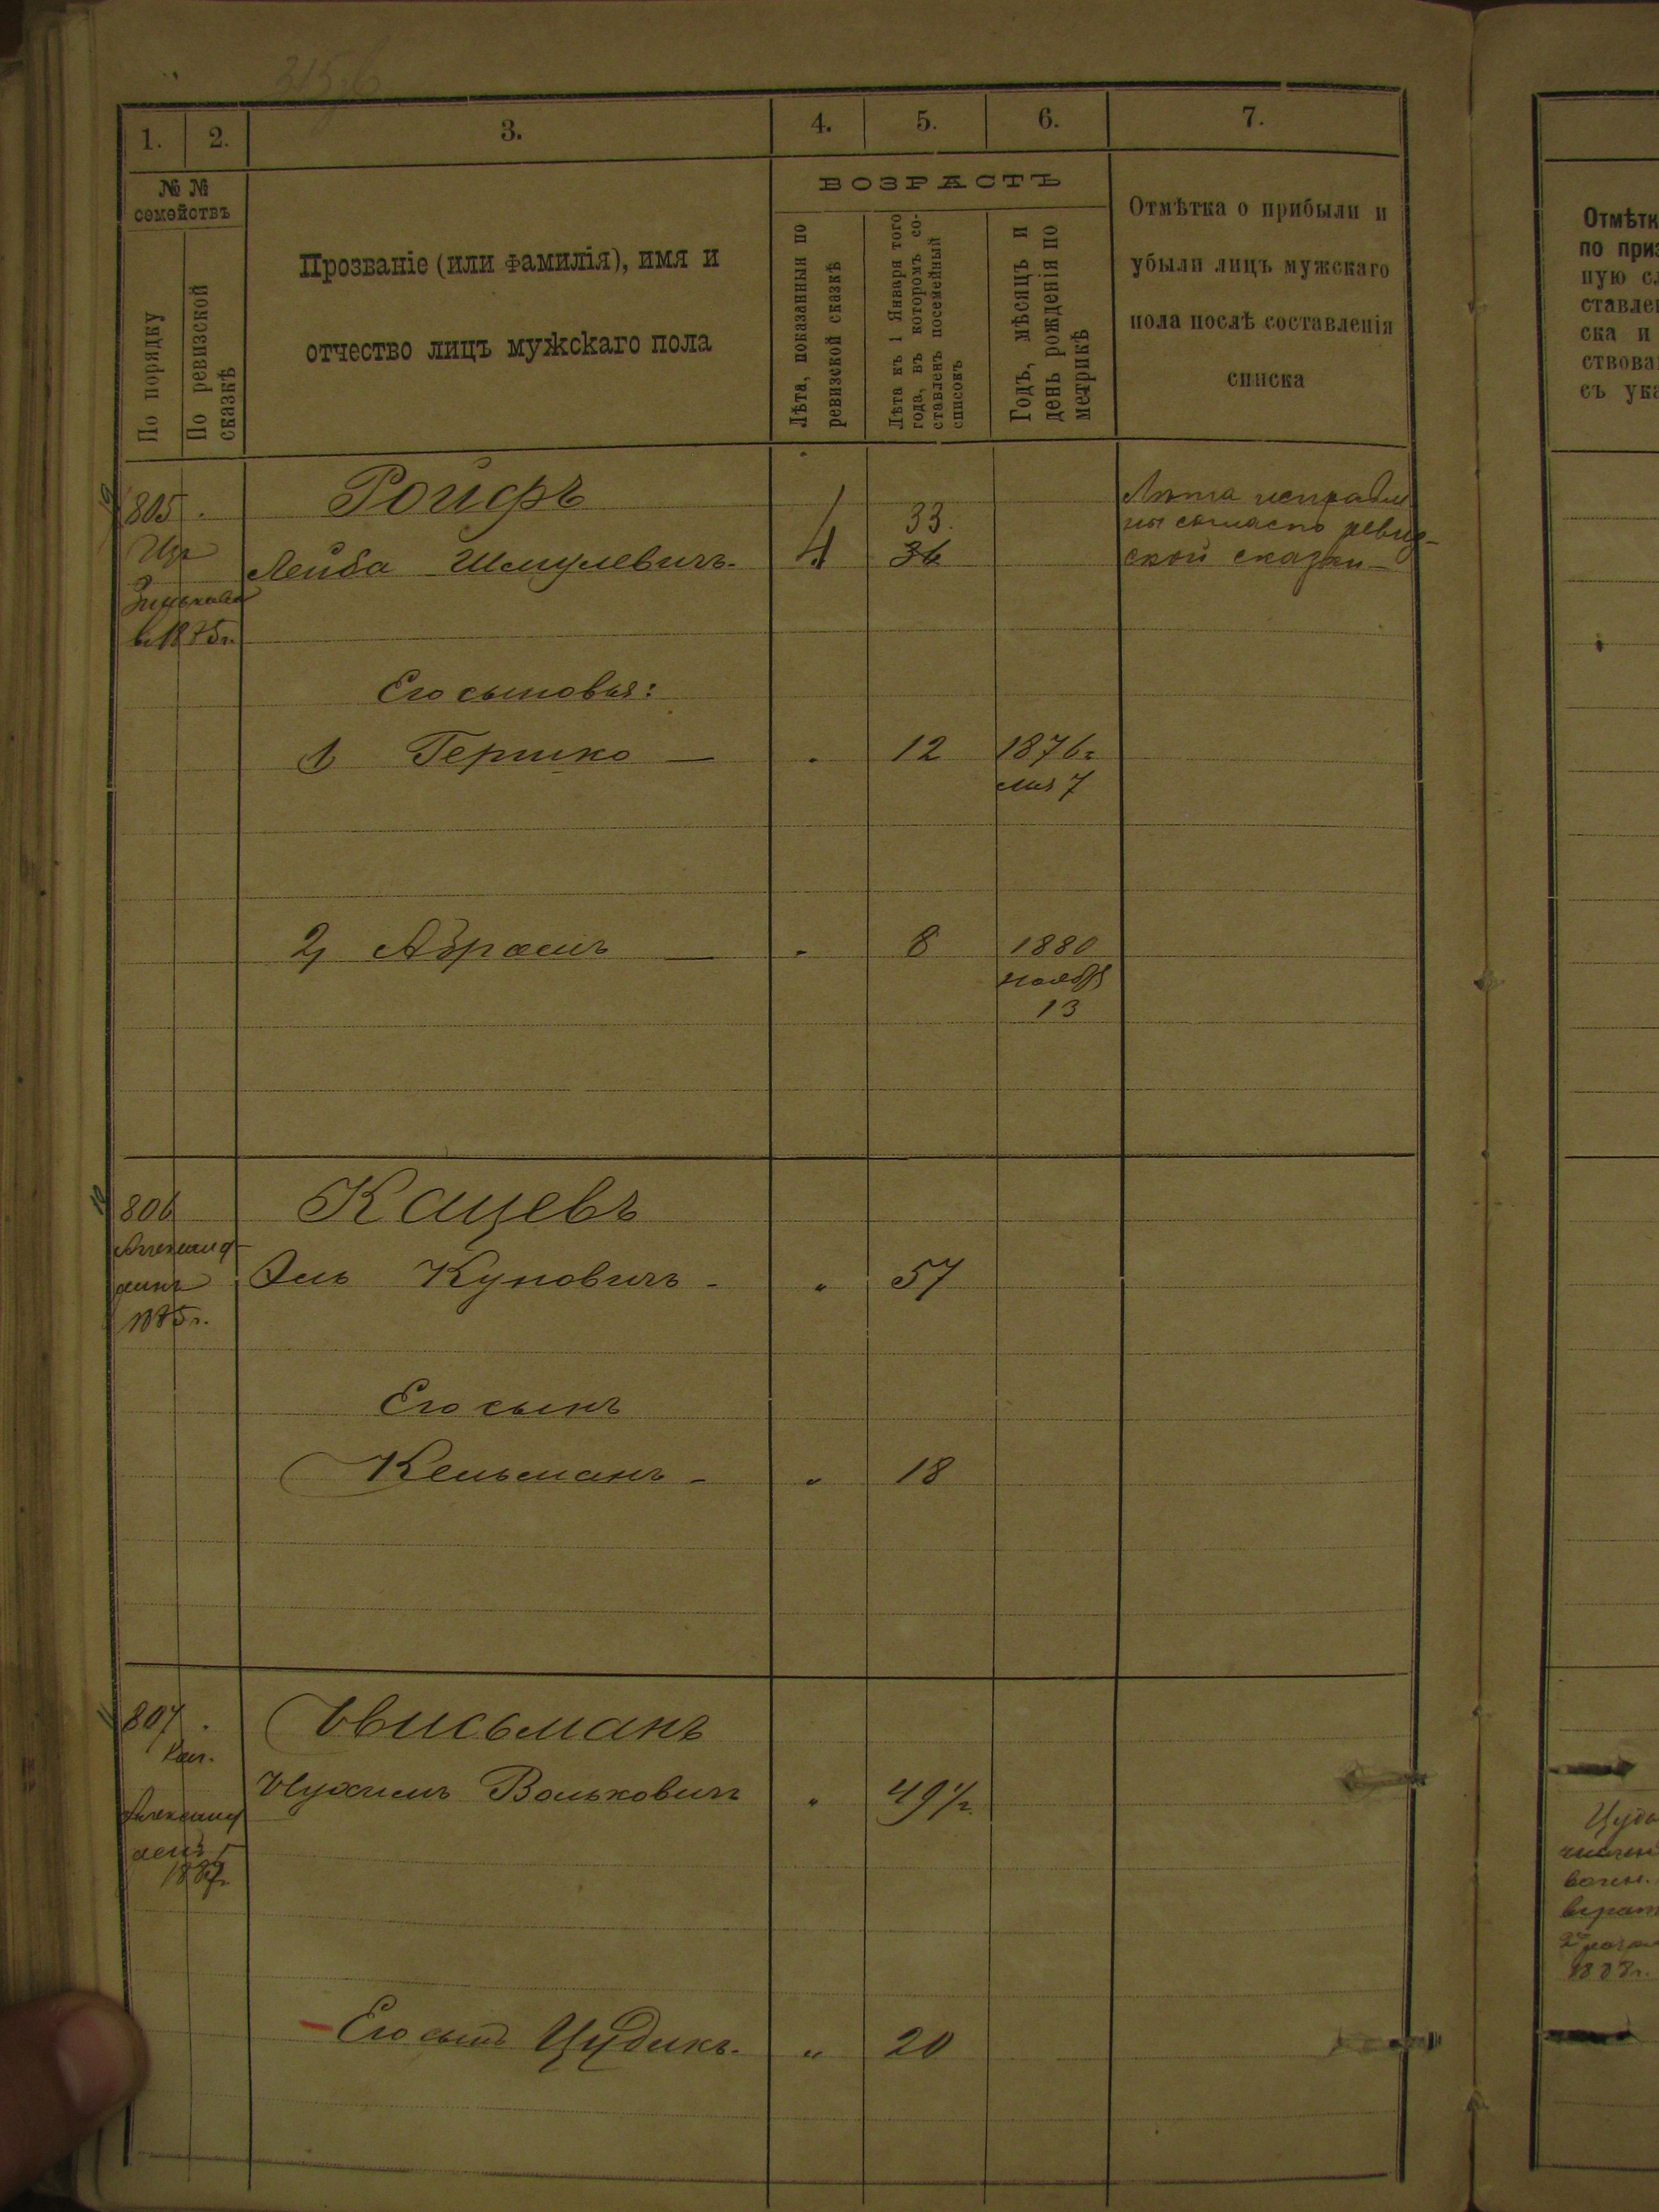 1. 2. 3. 4. 5. 6. 7.
№ №
семействъ
По порядку
По ревизской
сказкѣ
Прозваніе (или фамилія), имя и
отчество лицъ мужскаго пола
ВОЗРАСТЪ
Лѣта, показанныя по
ревизской сказкѣ
Лѣта къ 1 Января того
года, въ которомъ со-
ставленъ посемейный
списокъ
Годъ, мѣсяцъ и
день рожденія по
метрикѣ
Отмѣтка о прибыли и
убыли лицъ мужскаго
пола послѣ составленія
списка
805
Изъ
Зинькова
въ 1875г.
Ройфъ
Лейба Шмулевичъ 4 33. 36
Лѣта исправле
ны согласно ревиз-
ской сказки
Его сыновья:
1 Гершко 12 1876г
мая 7
2, Абрамъ 8 1880
ноябр
13
806
Кацевъ
1875г.
Эль Куповичъ 57
Его сынъ
Кельманъ 18
807
Нухимъ Вольковичъ 49 1/2
Его сынъ Цудикъ 20
Отмѣтк
по приз
ную сл
ставлен
ска и
ствова
съ ука
Цуди